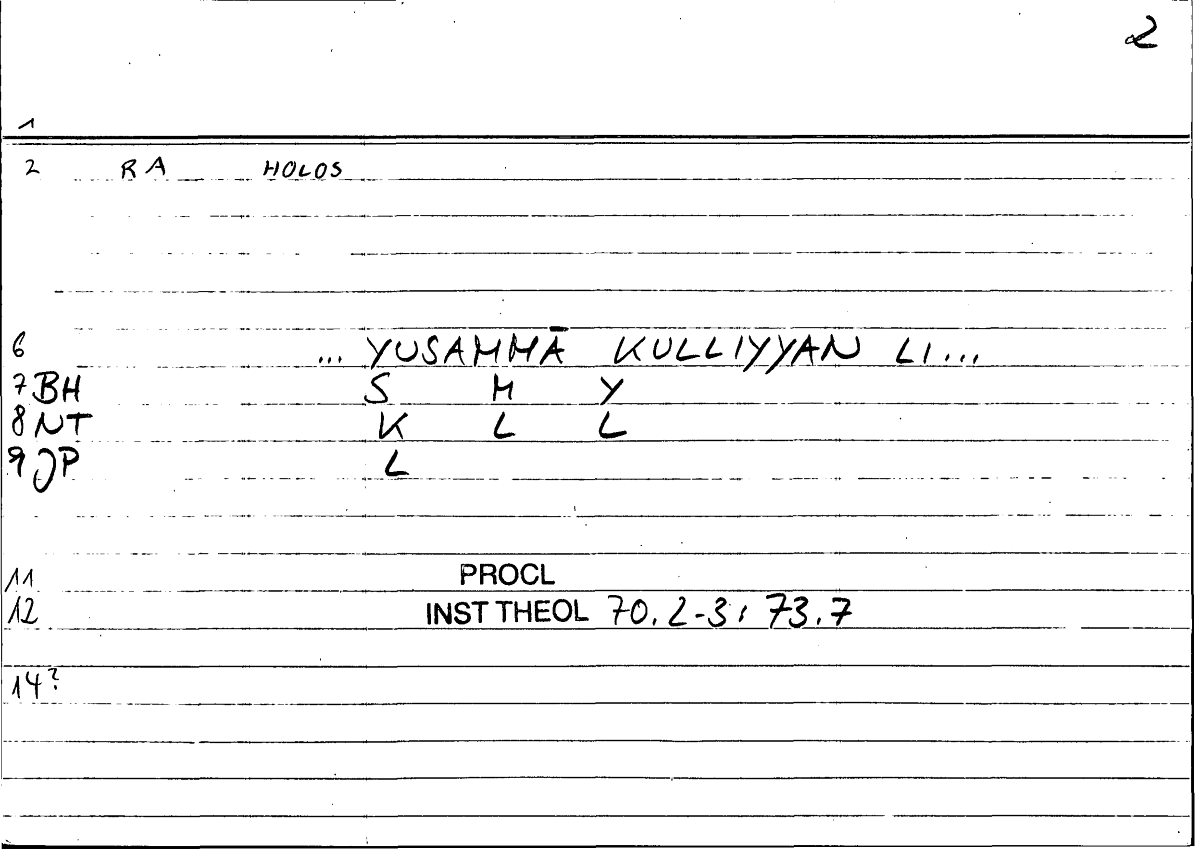 2
1
2 RA HOLOS
6 ... YUSAMMĀ KULLIYYAN LI...
7 BH S M Y
8 NT K L L
9 JP L
11 PROCL
12 INST THEOL 70.2-3; 73.7
14?